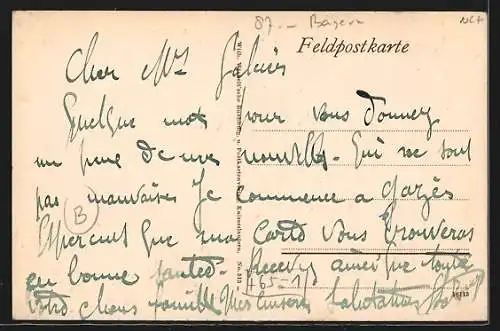 87.- Bayern
Feldpostkarte
Cher Mr
Quelque mots pour vous donner
un peux de mes nouvelles. Qui ne sont
pas mauvaises Je commence a
Esperent que ma carte vous trouveras
en bonne santes. Recevez ainsi que toute
votre chers famille Mes Salutation
B
465-1